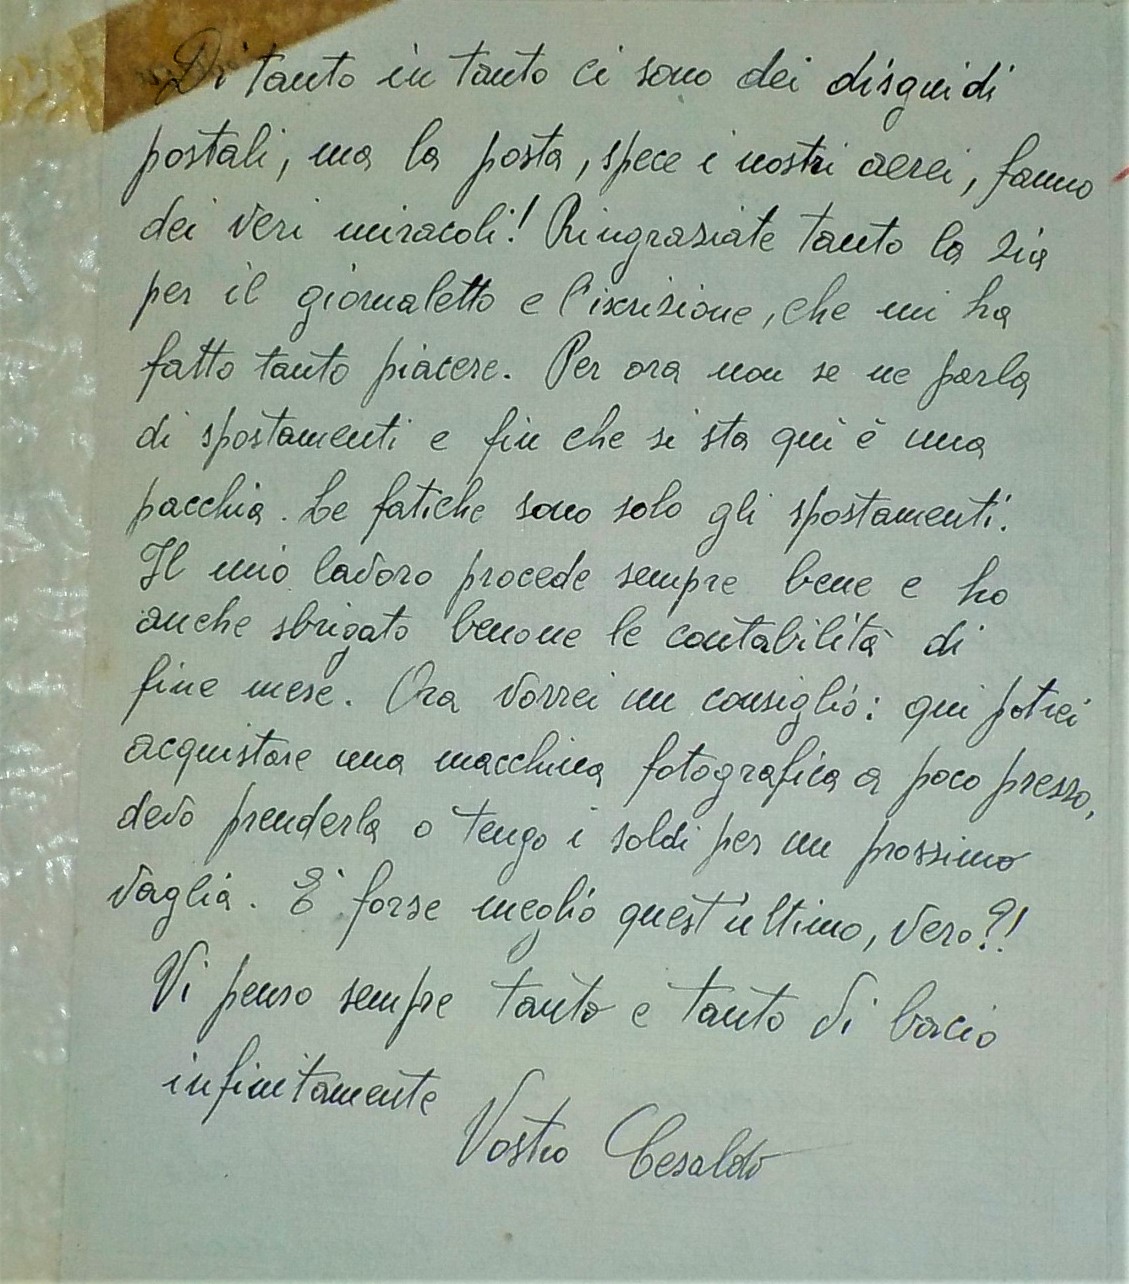 Di tanto in tanto ci sono dei disguidi
postali, ma la posta, spece i nostri aerei, fanno
dei veri miracoli! Ringraziate tanto la zia
per il giornaletto e l'iscrizione, che mi ha
fatto tanto piacere. Per ora non se ne parla
di spostamenti e fin che si sta qui è una
pacchia. Le fatiche sono solo gli spostamenti.
Il mio lavoro procede sempre bene e ho
anche sbrigato benone le contabilità di
fine mese. Ora vorrei un consiglio: qui potrei
acquistare una macchina fotografica a poco prezzo,
devo prenderla o tengo i soldi per un prossimo
vaglia. E' forse meglio quest'ultimo, vero?!
Vi penso sempre tanto e tanto Vi bacio
infinitamente
Vostro Cesaldo